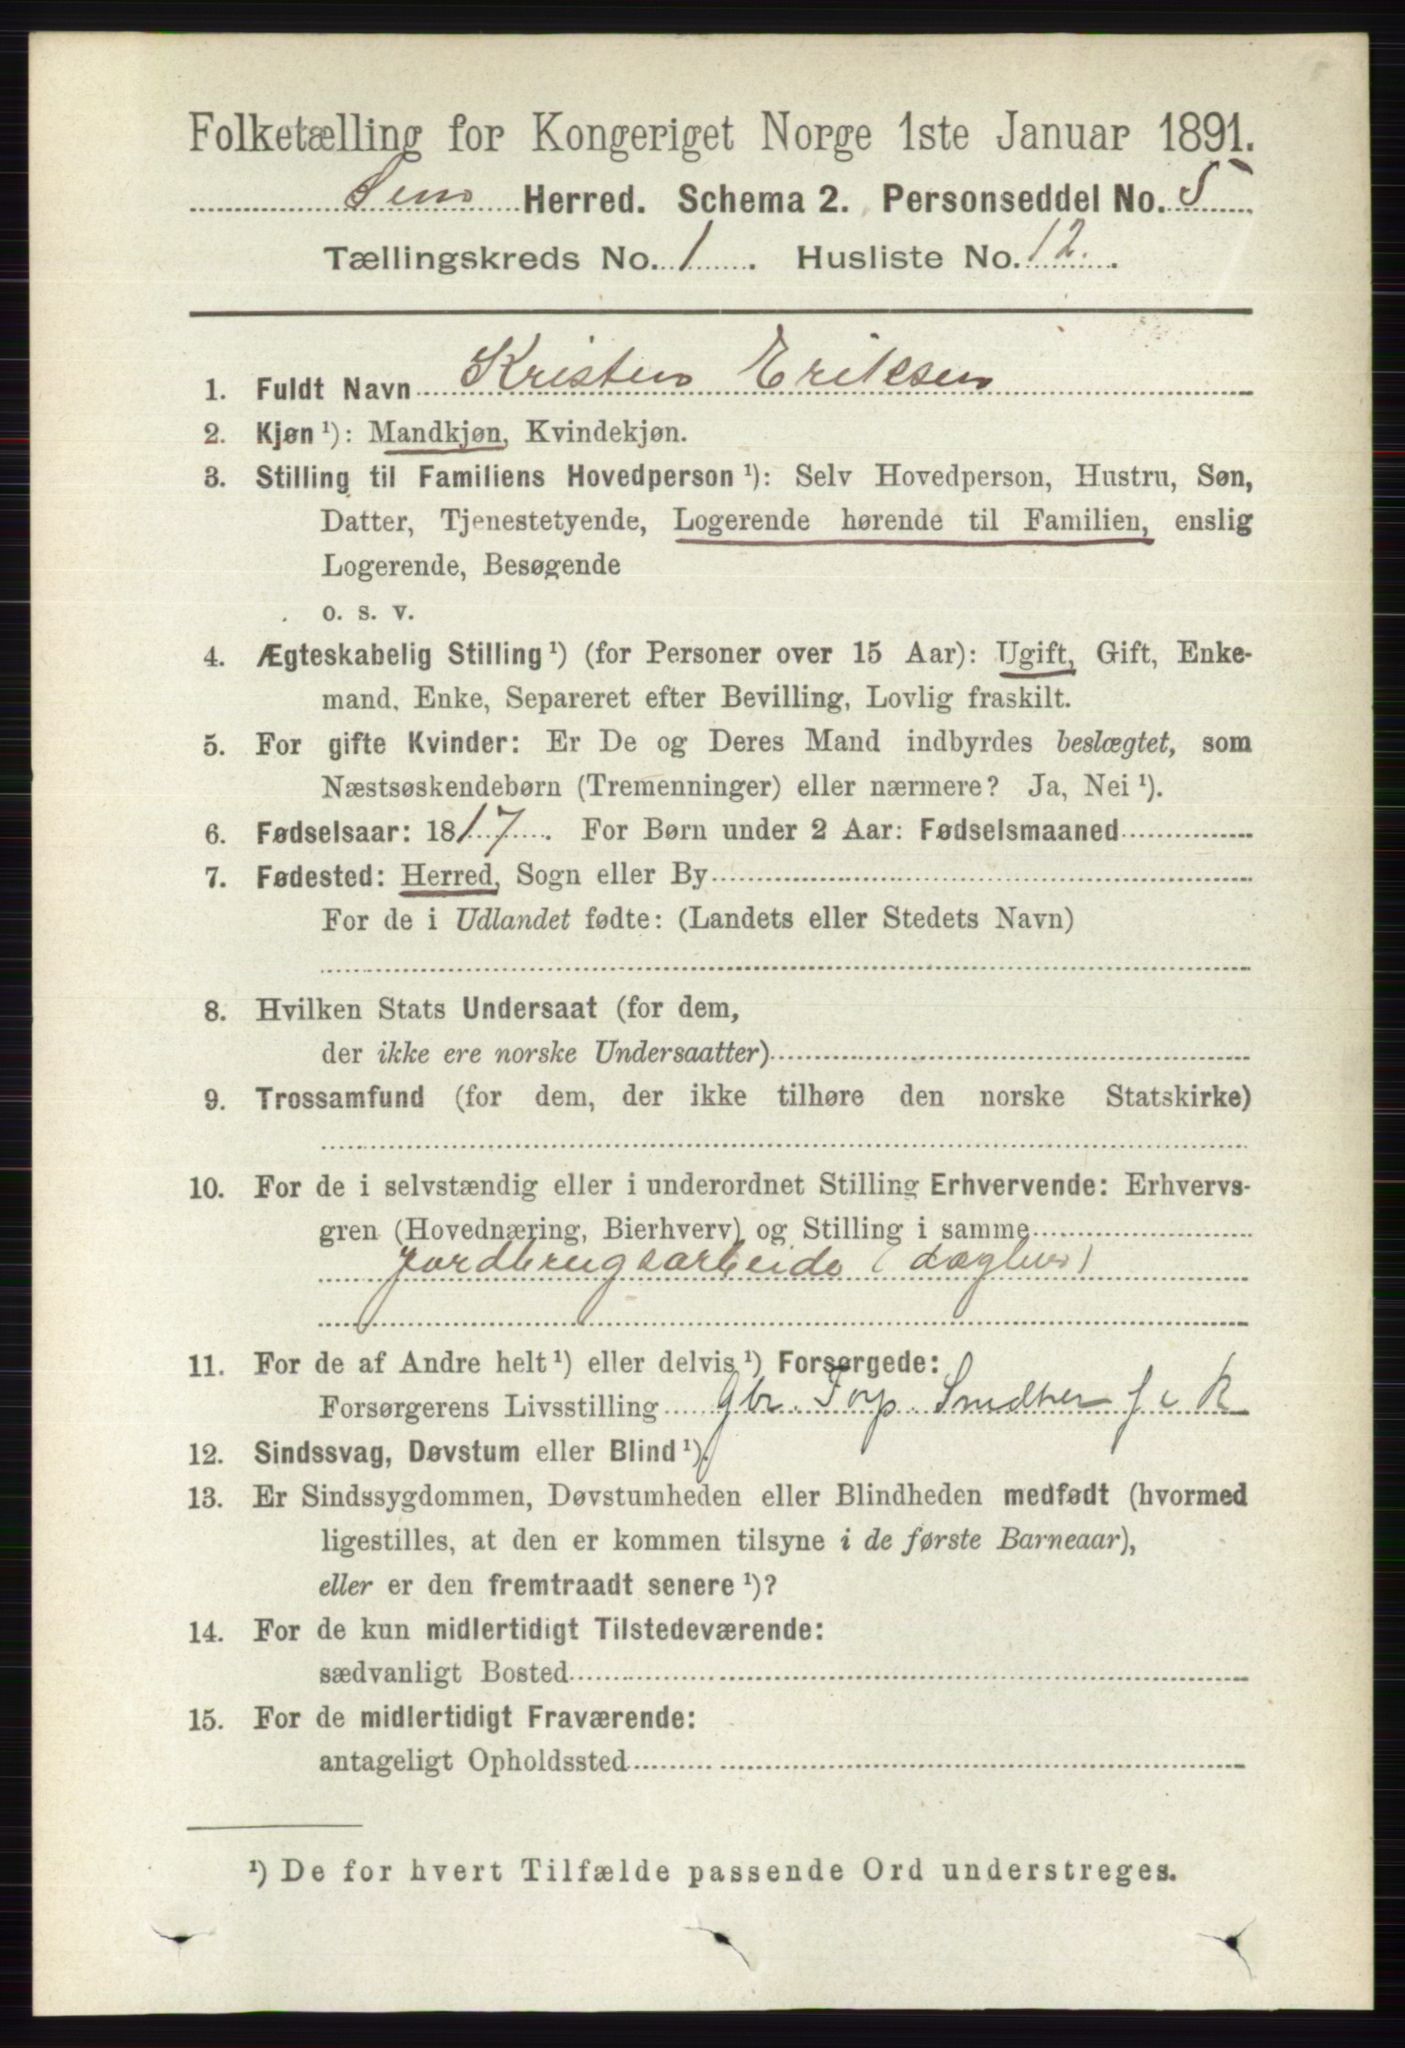 Folketælling for Kongeriget Norge 1ste Januar 1891.
Sem Herred. Schema 2. Personseddel No. 5
Tællingskreds No. 1. Husliste No. 12.
1. Fuldt Navn Kristen Eriksen
2. Kjøn ¹): Mandkjøn, Kvindekjøn.
3. Stilling til Familiens Hovedperson ¹): Selv Hovedperson, Hustru, Søn,
Datter, Tjenestetyende, Logerende hørende til Familien, enslig
Logerende, Besøgende
o. s. v.
4. Ægteskabelig Stilling ¹) (for Personer over 15 Aar): Ugift, Gift, Enke-
mand, Enke, Separeret efter Bevilling, Lovlig fraskilt.
5. For gifte Kvinder: Er De og Deres Mand indbyrdes beslægtet, som
Næstsøskendebørn (Tremenninger) eller nærmere? Ja, Nei ¹).
6. Fødselsaar: 1817. For Børn under 2 Aar: Fødselsmaaned
7. Fødested: Herred, Sogn eller By
For de i Udlandet fødte: (Landets eller Stedets Navn)
8. Hvilken Stats Undersaat (for dem,
der ikke ere norske Undersaatter)
9. Trossamfund (for dem, der ikke tilhøre den norske Statskirke)
10. For de i selvstændig eller i underordnet Stilling Erhvervende: Erhvervs-
gren (Hovednæring, Bierhverv) og Stilling i samme
Jordbrugsarbeide
11. For de af Andre helt ¹) eller delvis ¹) Forsørgede:
Forsørgerens Livsstilling gbr.
12. Sindssvag, Døvstum eller Blind ¹).
13. Er Sindssygdommen, Døvstumheden eller Blindheden medfødt (hvormed
ligestilles, at den er kommen tilsyne i de første Barneaar),
eller er den fremtraadt senere ¹)?
14. For de kun midlertidigt Tilstedeværende:
sædvanligt Bosted
15. For de midlertidigt Fraværende:
antageligt Opholdssted
¹) De for hvert Tilfælde passende Ord understreges.